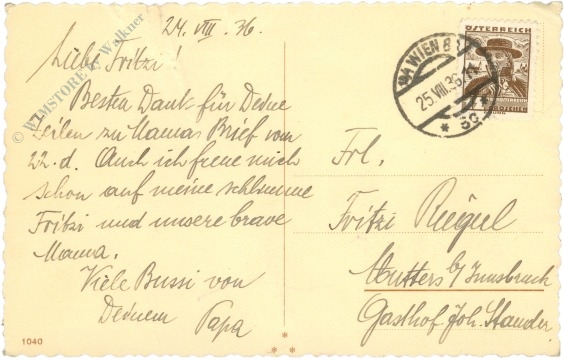 24. VIII. 36.
Liebe Fritzi!
Besten Dank für Deine
Zeilen zu Mamas Brief vom
22. d. Auch ich freue mich
schon auf meine schlimme
Fritzi und unsere brave
Mama.
Viele Bussi von
Deinem Papa
1040
© WWMSTORE Walkner
WIEN 8
25.VIII.36
ÖSTERREICH
GROSCHEN
Frl.
Fritzi Riegel
Mutters b/ Innsbruck
Gasthof Joh. Stauder